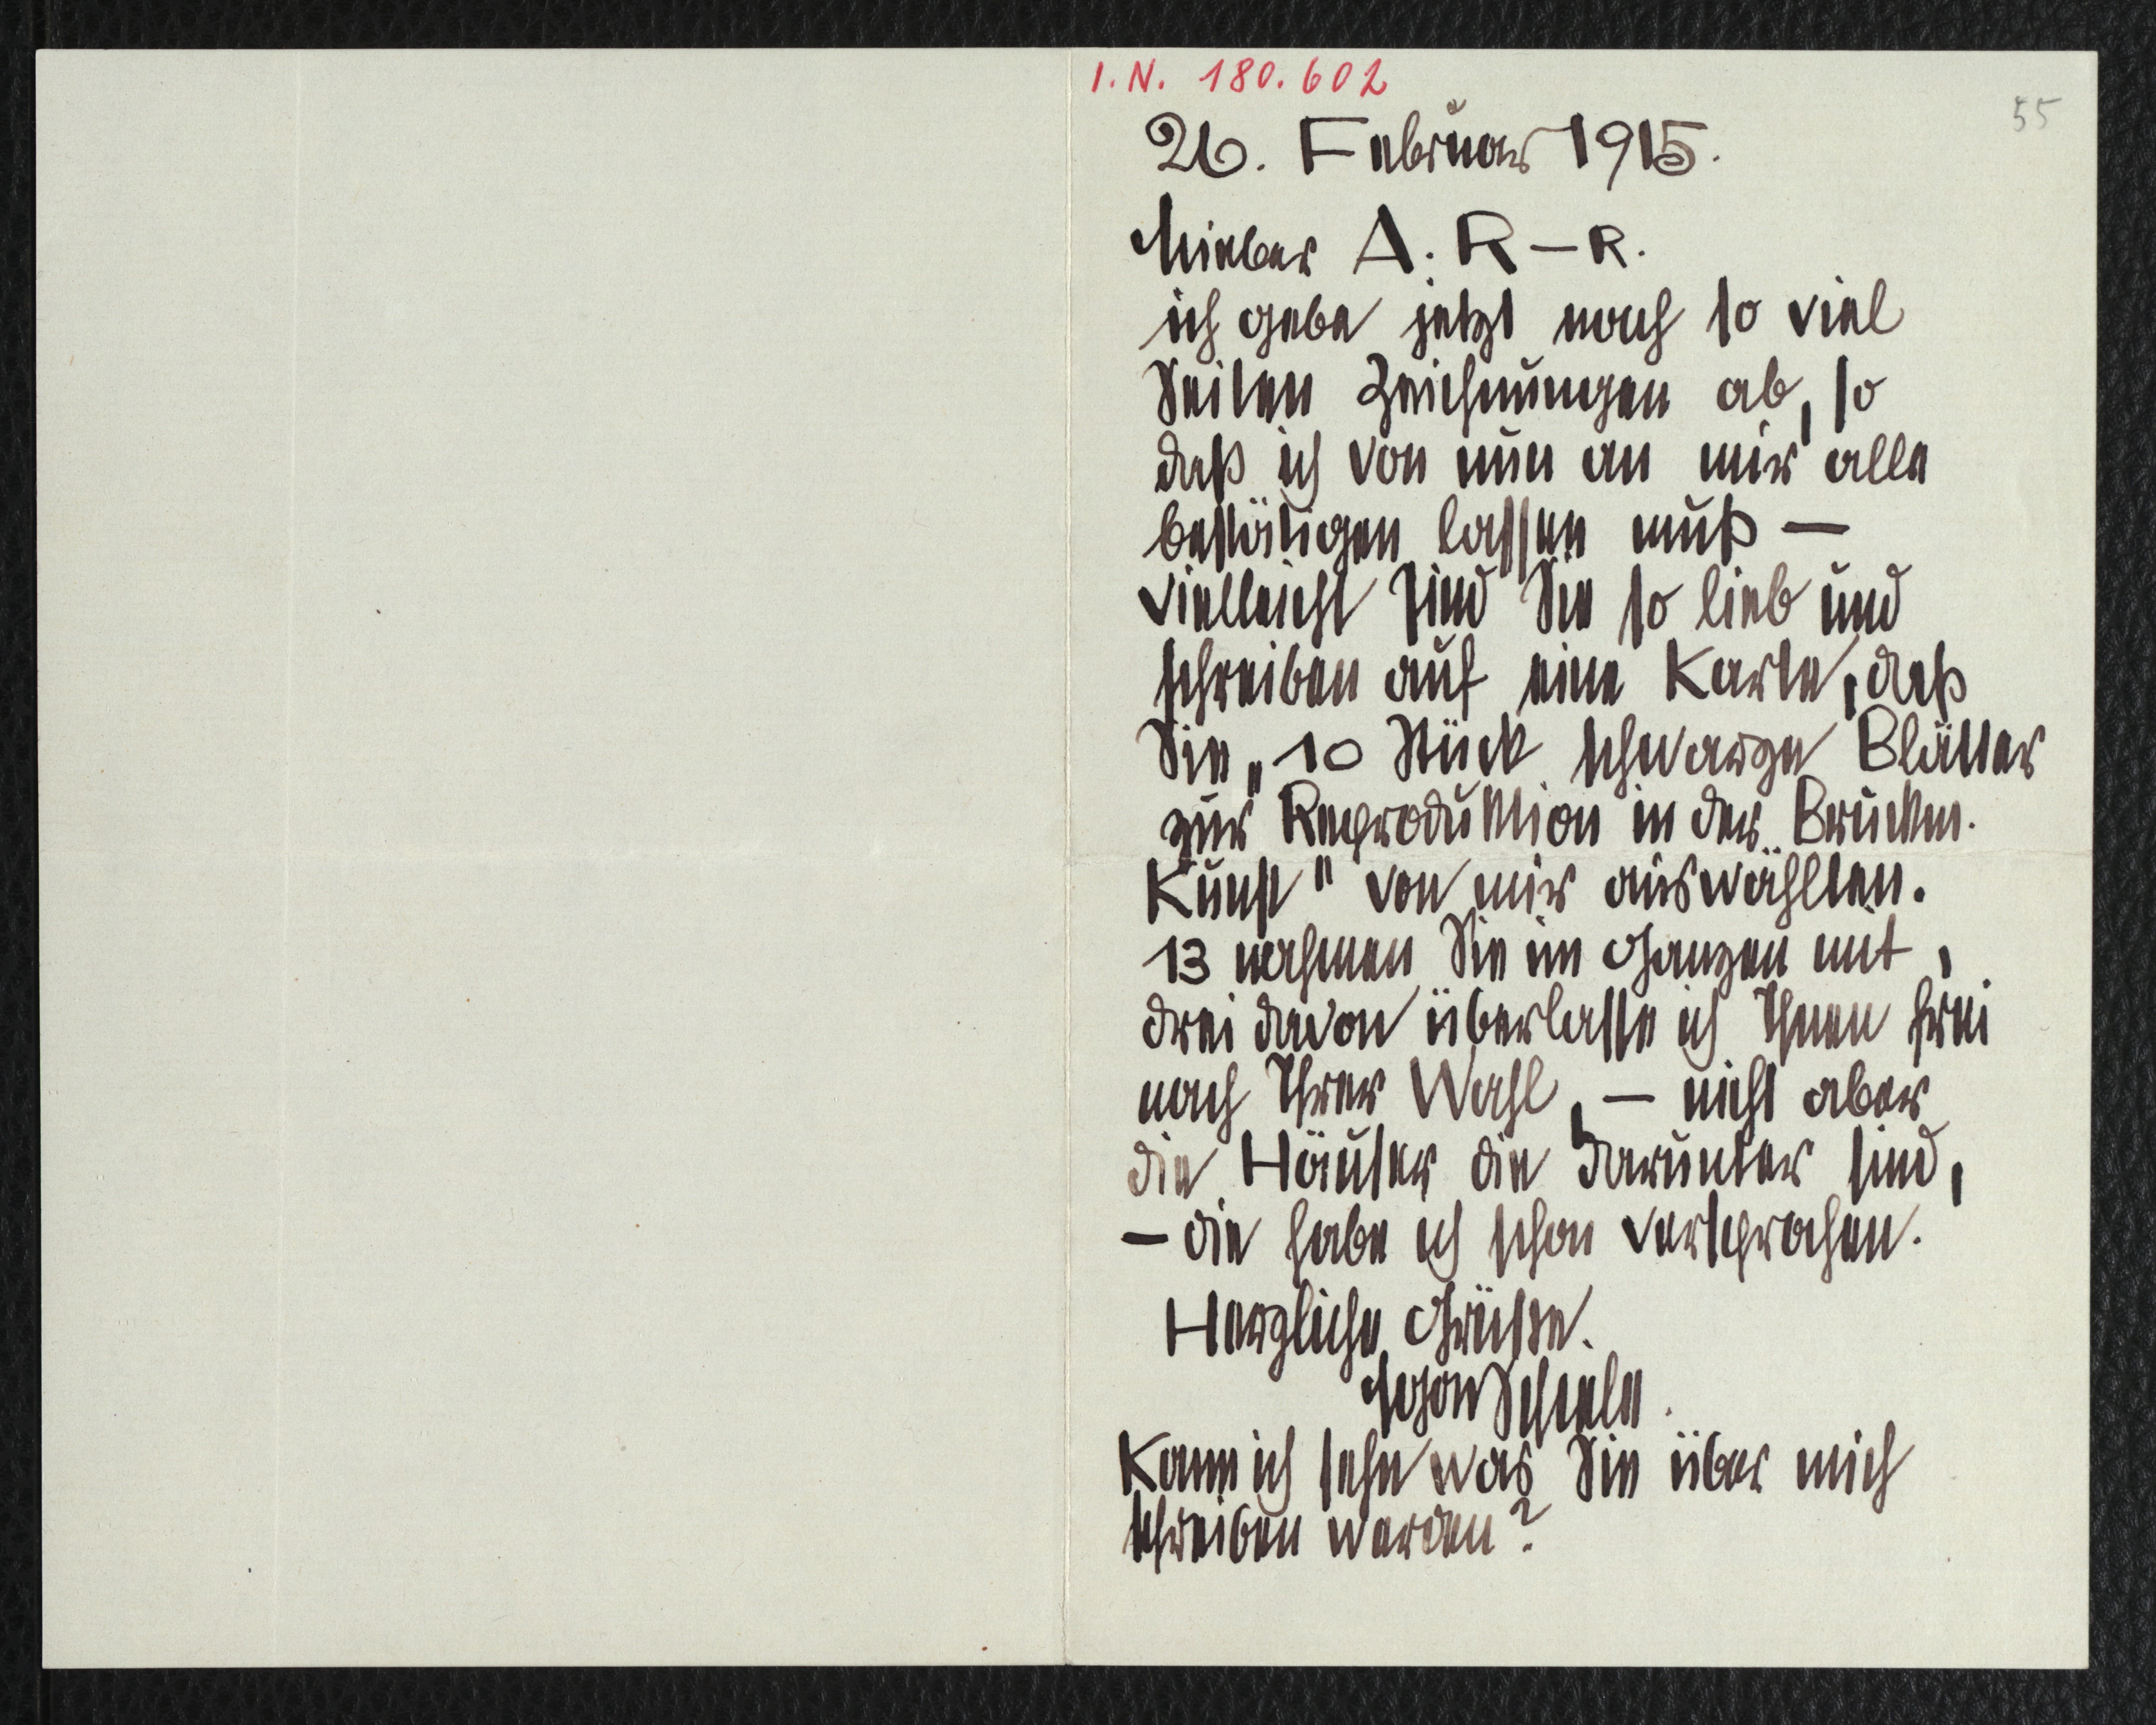 I.N. 180.602
55
26. Februar 1915.
Lieber A. R–R.
ich gebe jetzt nach so viel
Seiten Zeichnungen ab, so
daß ich von nun an mir alle
bestätigen lassen muß —
vielleicht sind Sie so lieb und
schreiben auf eine Karte, daß
Sie „10 Stück schwarze Blätter
zur Reproduktion in der
Kunst" von mir auswählten.
13 nahmen Sie im Ganzen mit,
drei davon überlasse ich Ihnen frei
nach Ihrer Wahl, — nicht aber
die Häuser die darunter sind,
— die habe ich schon versprochen.
Herzliche Grüsse.
Egon Schiele.
Kann ich sehn was Sie über mich
schreiben werden?